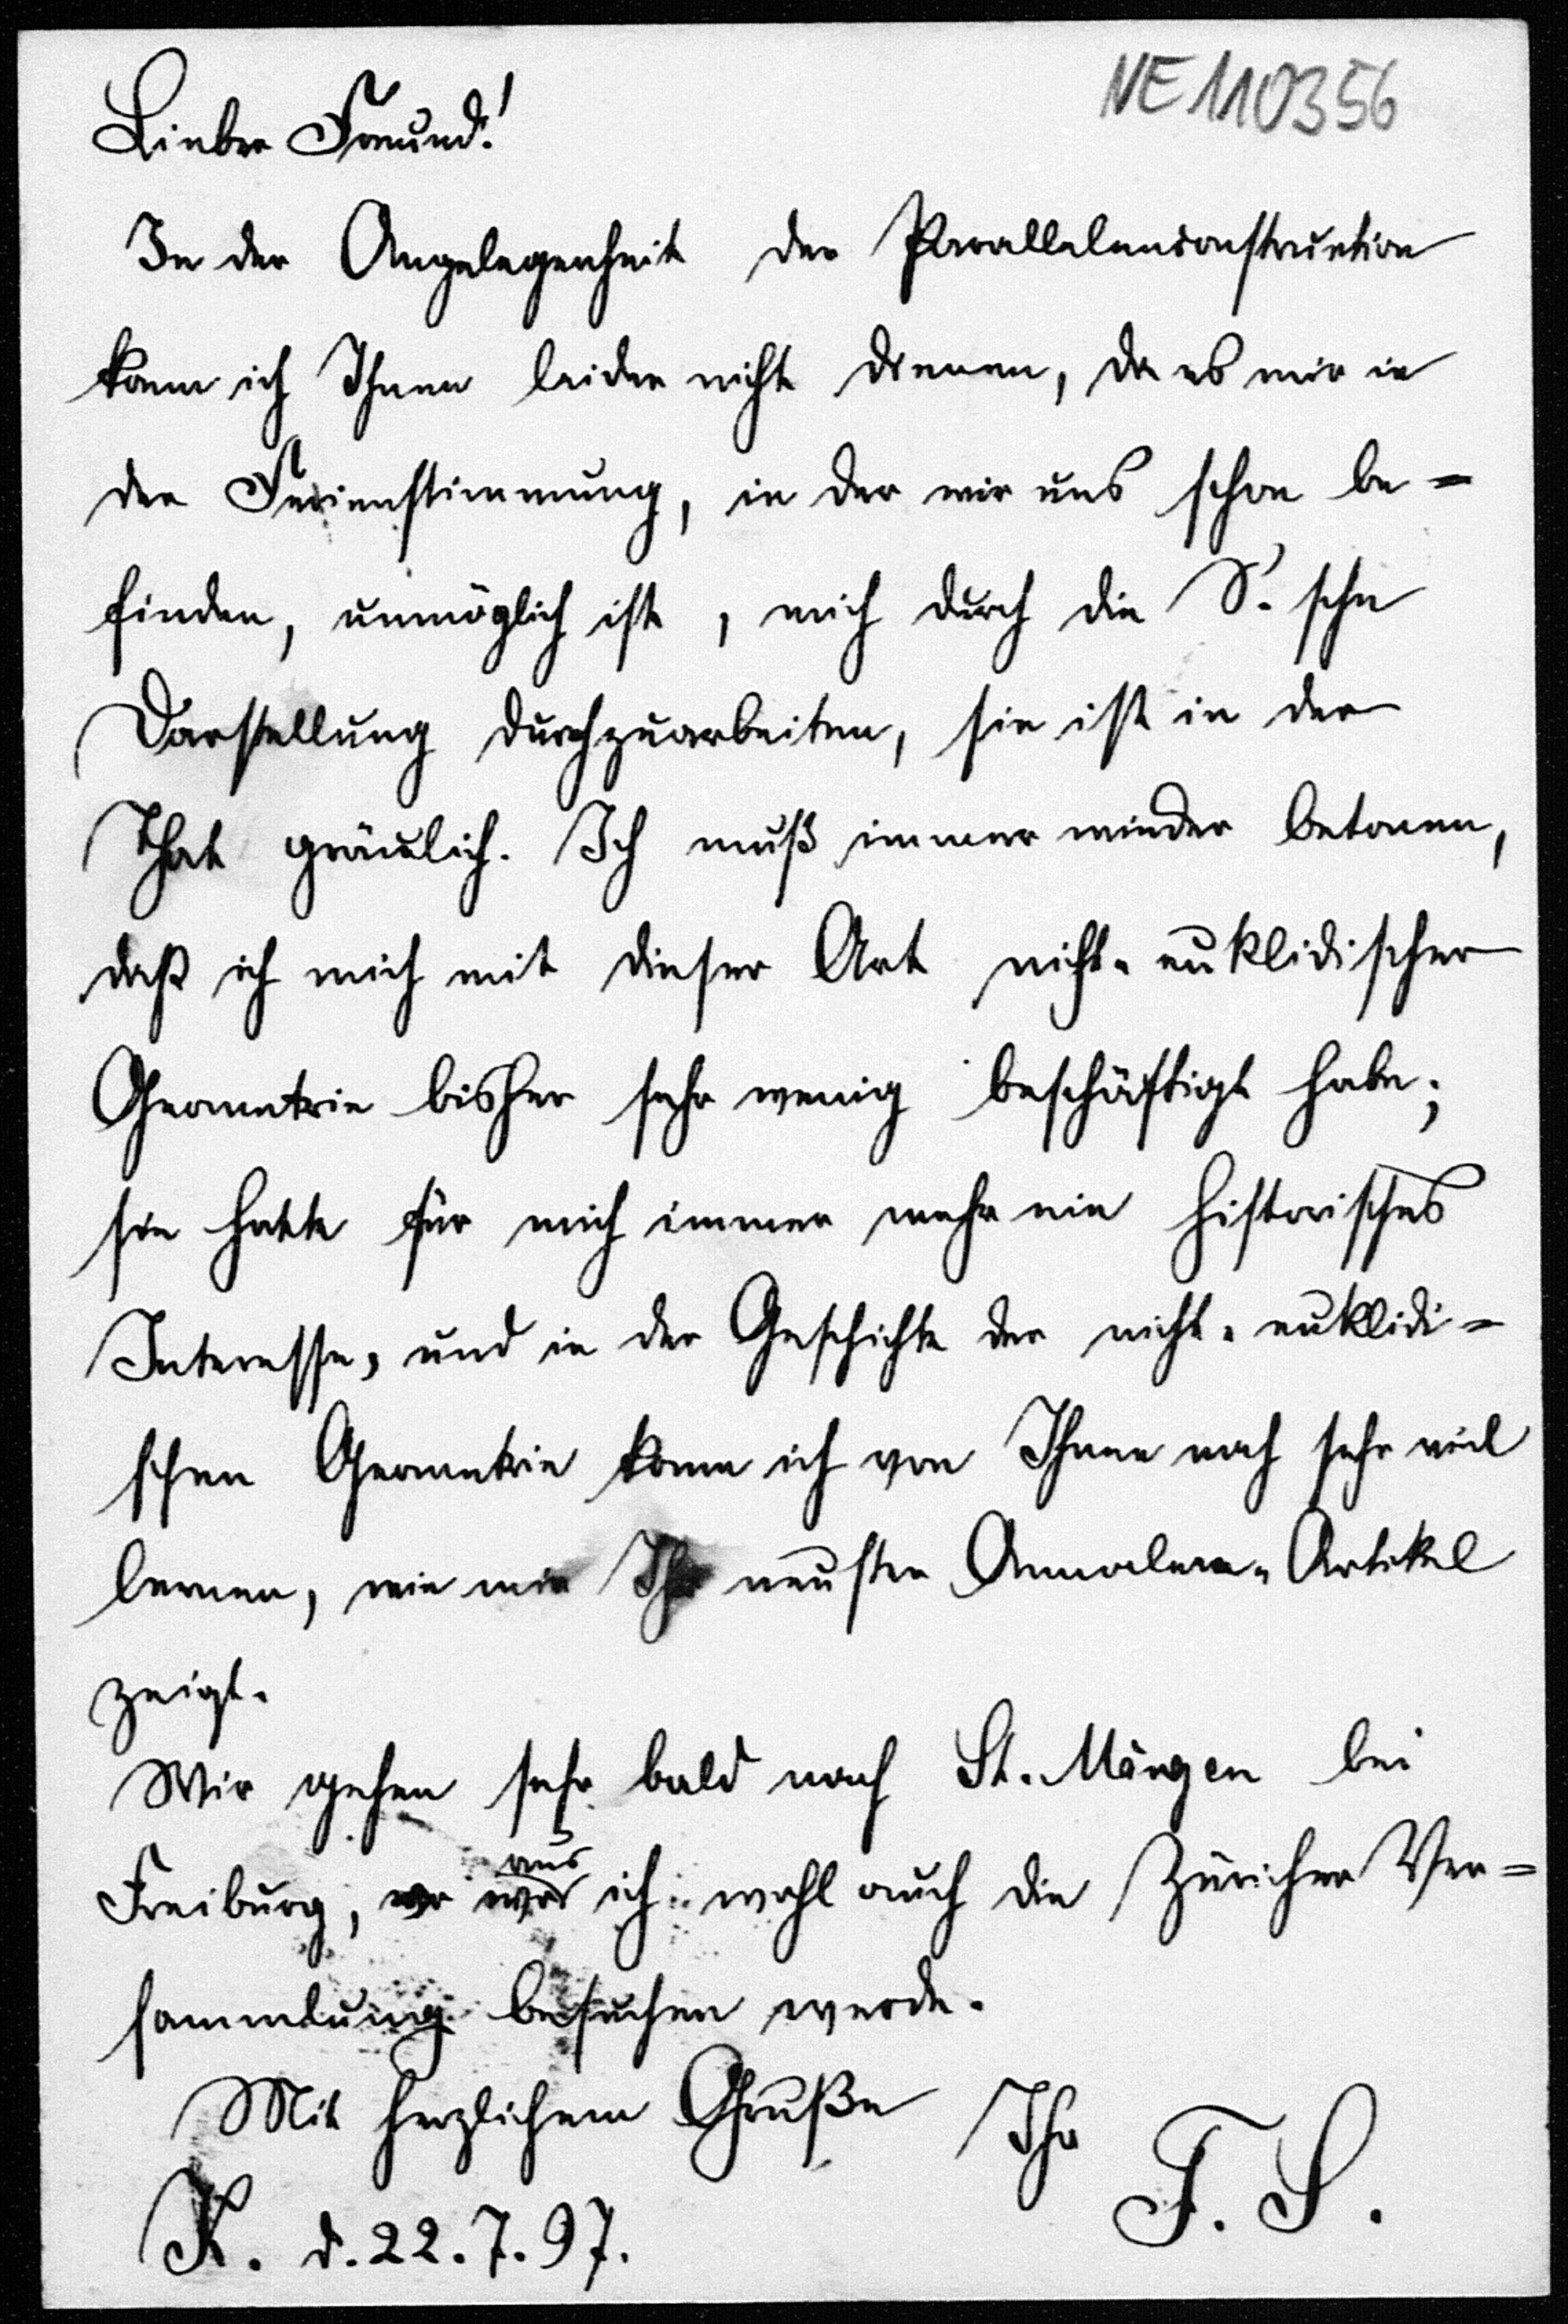 NE110356
Lieber Freund!
In der Angelegenheit der Parallelenconstruction
kann ich Ihnen leider nicht dienen, da es mir in
der Ferienstimmung, in der wir uns schon be=
finden, unmöglich ist, mich durch die S.'sche
Darstellung durchzuarbeiten, sie ist in der
That gräulich. Ich muß immer wieder betonen,
daß ich mich mit dieser Art nicht-euklidischer
Geometrie bisher sehr wenig beschäftigt habe;
sie hatte für mich immer mehr ein historisches
Interesse, und in der Geschichte der nicht-euklidi=
schen Geometrie kann ich von Ihnen noch sehr viel
lernen, wie mir Ihr neuster Annalen-Artikel
zeigt.
Wir gehen sehr bald nach St. Märgen bei
aus
Freiburg, von wo ich wohl auch die Züricher Ver=
sammlung besuchen werde.
Mit herzlichem Gruße Ihr
F. S.
K. d. 22. 7. 97.